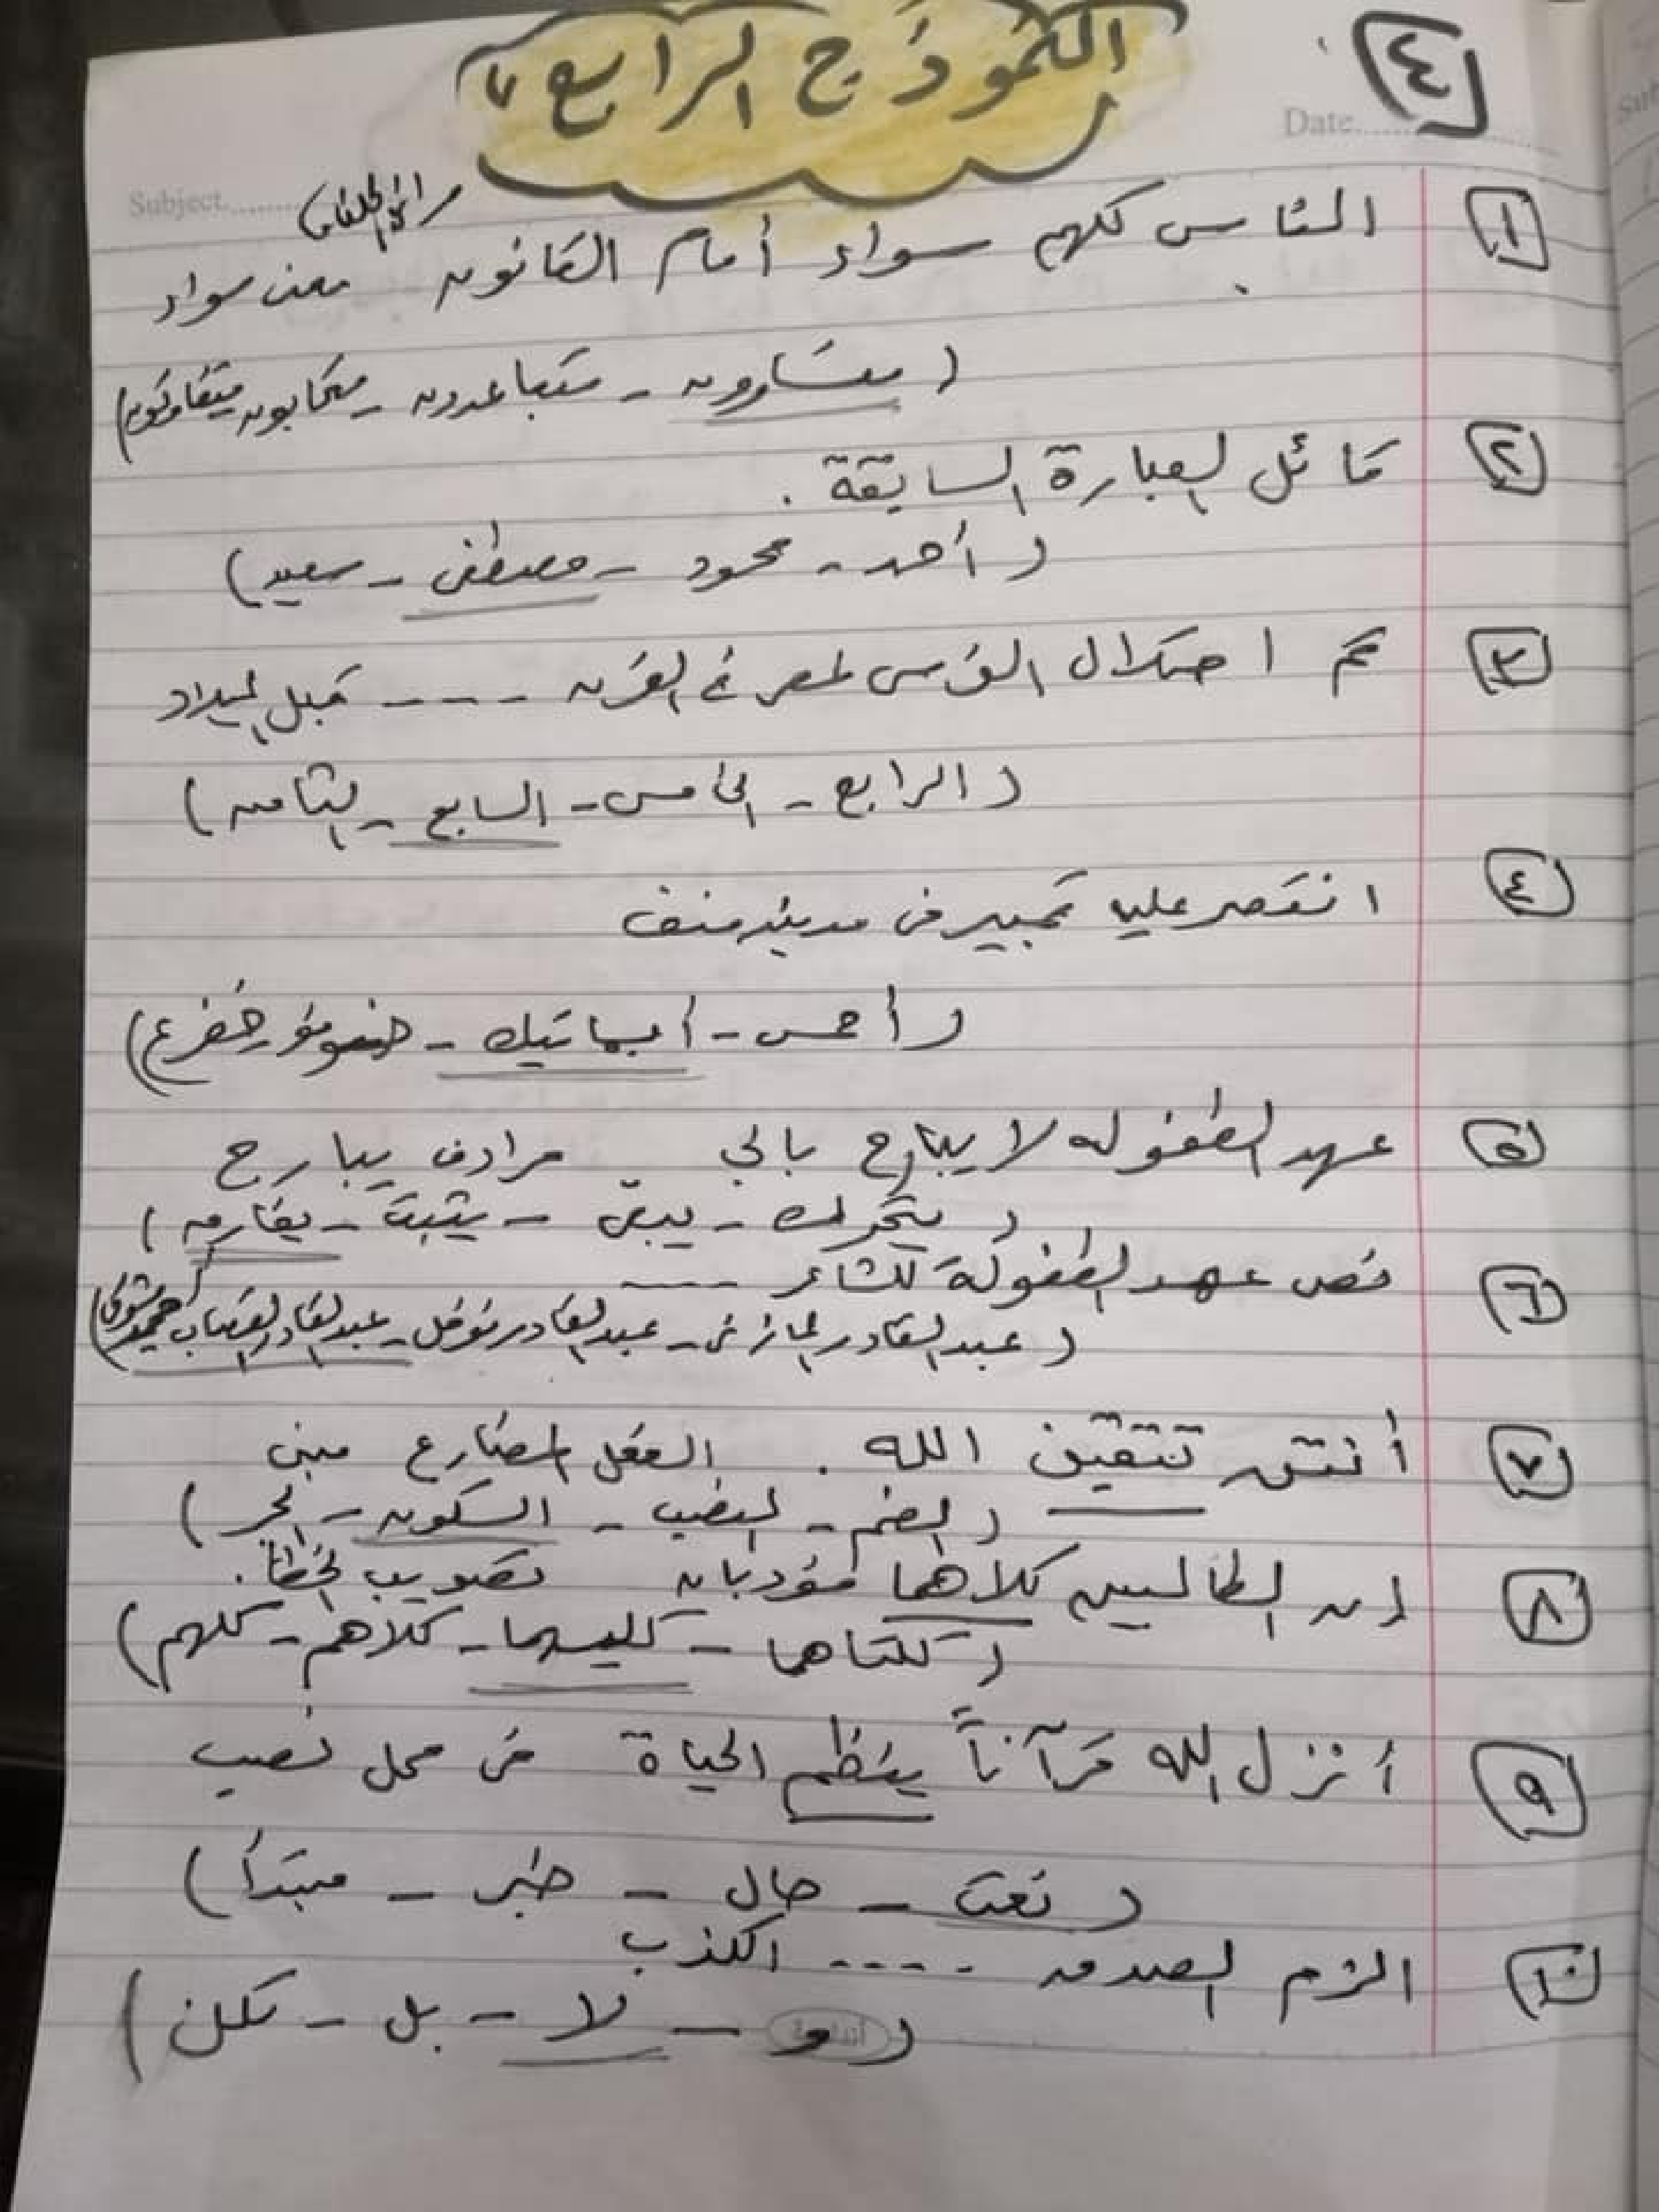 ٤
النموذج الرابع
Date
Subject
١ الناس كلهم سواء أمام القانون معنى سواء
( متساوون - متباعدون - متحابون - متفاوتون )
٢ قائل العبارة السابقة .
( أحمد - محمود - مصطفى - سعيد )
٣ تم احتلال الفرس لمصر في القرن ---- قبل الميلاد
( الرابع - الخامس - السابع - الثامن )
٤ انتصر عليه قمبيز في مدينة منف
( أحمس - أبسماتيك - خوفو - خفرع )
٥ عهد الطفولة لا يبارح بالي مرادف يبارح
( يتحرك - يبقى - يثبت - يفارق )
٦ نص عهد الطفولة للشاعر ----
( عبد القادر المازني - عبد القادر نوفل - عبد القادر القصاب - أحمد شوقي )
٧ أنتن تتقين الله . الفعل المضارع مبنى
( الضم - النصب - السكون - الجر )
٨ إن الطالبين كلاهما مؤدبان تصويب الخطأ .
( كلتاهما - كليهما - كلاهم - كلهم )
٩ أنزل الله قرآناً ينظم الحياة في محل نصب
( نعت - حال - خبر - مبتدأ )
١٠ الزم الصدق ---- الكذب
( و - لا - بل - لكن )